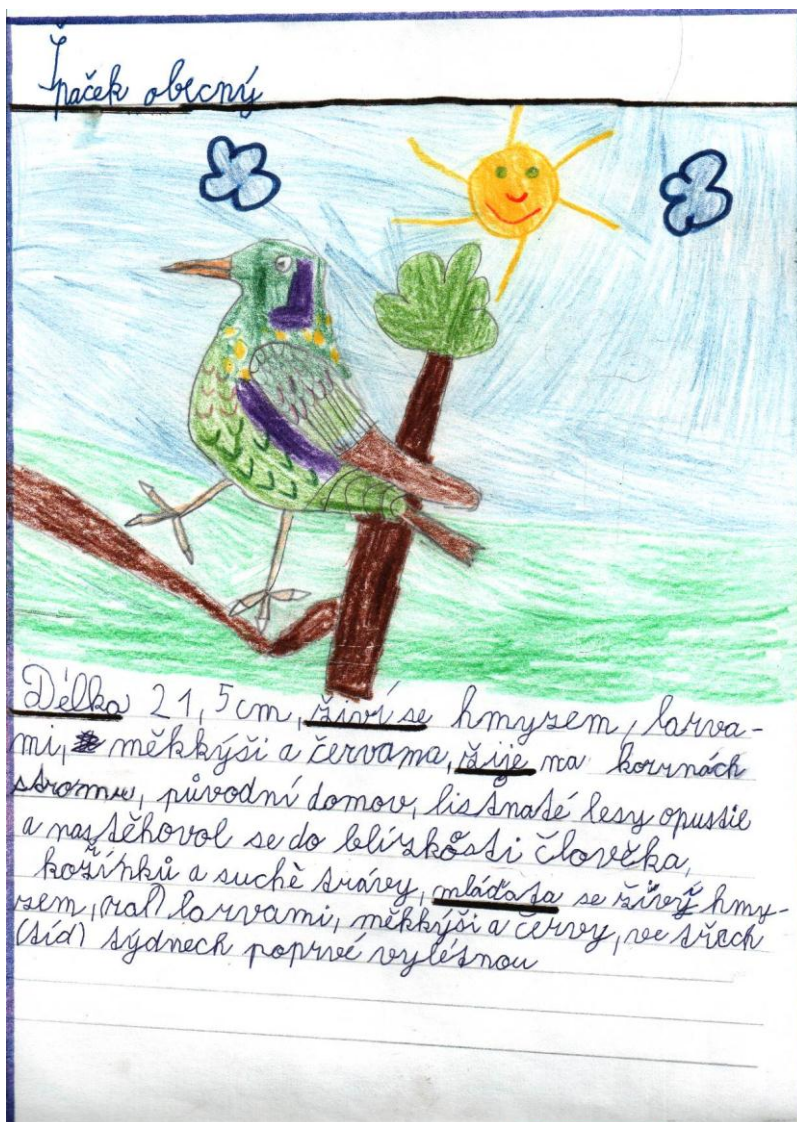 Špaček obecný
Délka 21,5cm, živí se hmyzem, larva-
mi, měkkýši a červama, žije na korunách
stromu, původní domov, listnaté lesy opustil
a nastěhovol se do blízkosti člověka,
kořínků a suché trávy, mláďata se živý hmy-
zem, larvami, měkkýši a červy, ve třech
týdnech poprvé vylétnou